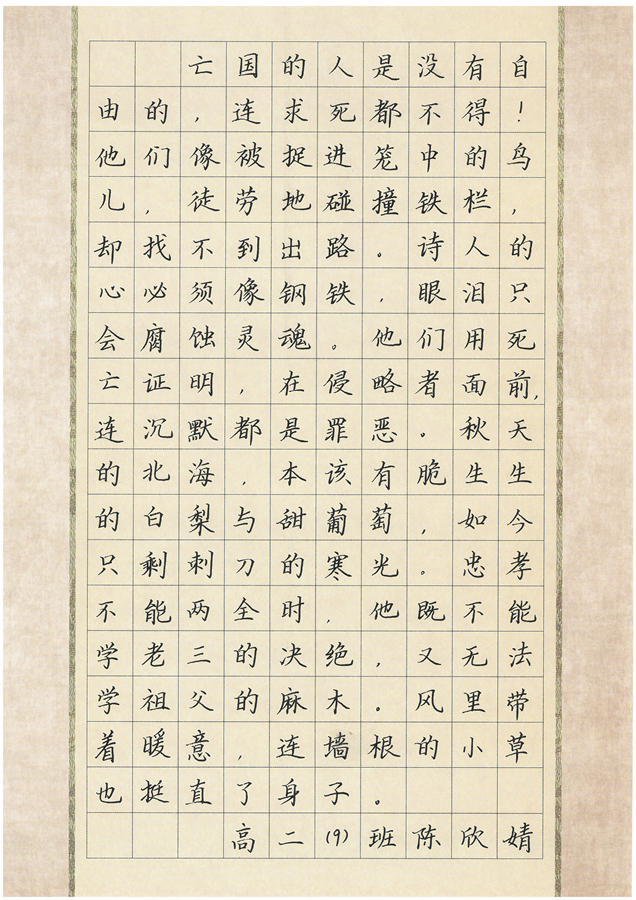 亡国的人是没有自
由的，连求死都不得！
他们像被捉进笼中的鸟
儿，徒劳地碰撞铁栏，
却找不到出路。诗人的
心必须像钢铁，眼泪只
会腐蚀灵魂。他们用死
亡证明，在侵略者面前，
连沉默都是罪恶。秋天
的北海，本该有脆生生
的白梨与甜葡萄，如今
只剩刺刀的寒光。忠孝
不能两全时，他既不能
学老三的决绝，又无法
学祖父的麻木。风里带
着暖意，连墙根的小草
也挺直了身子。
高二(9)班陈欣婧